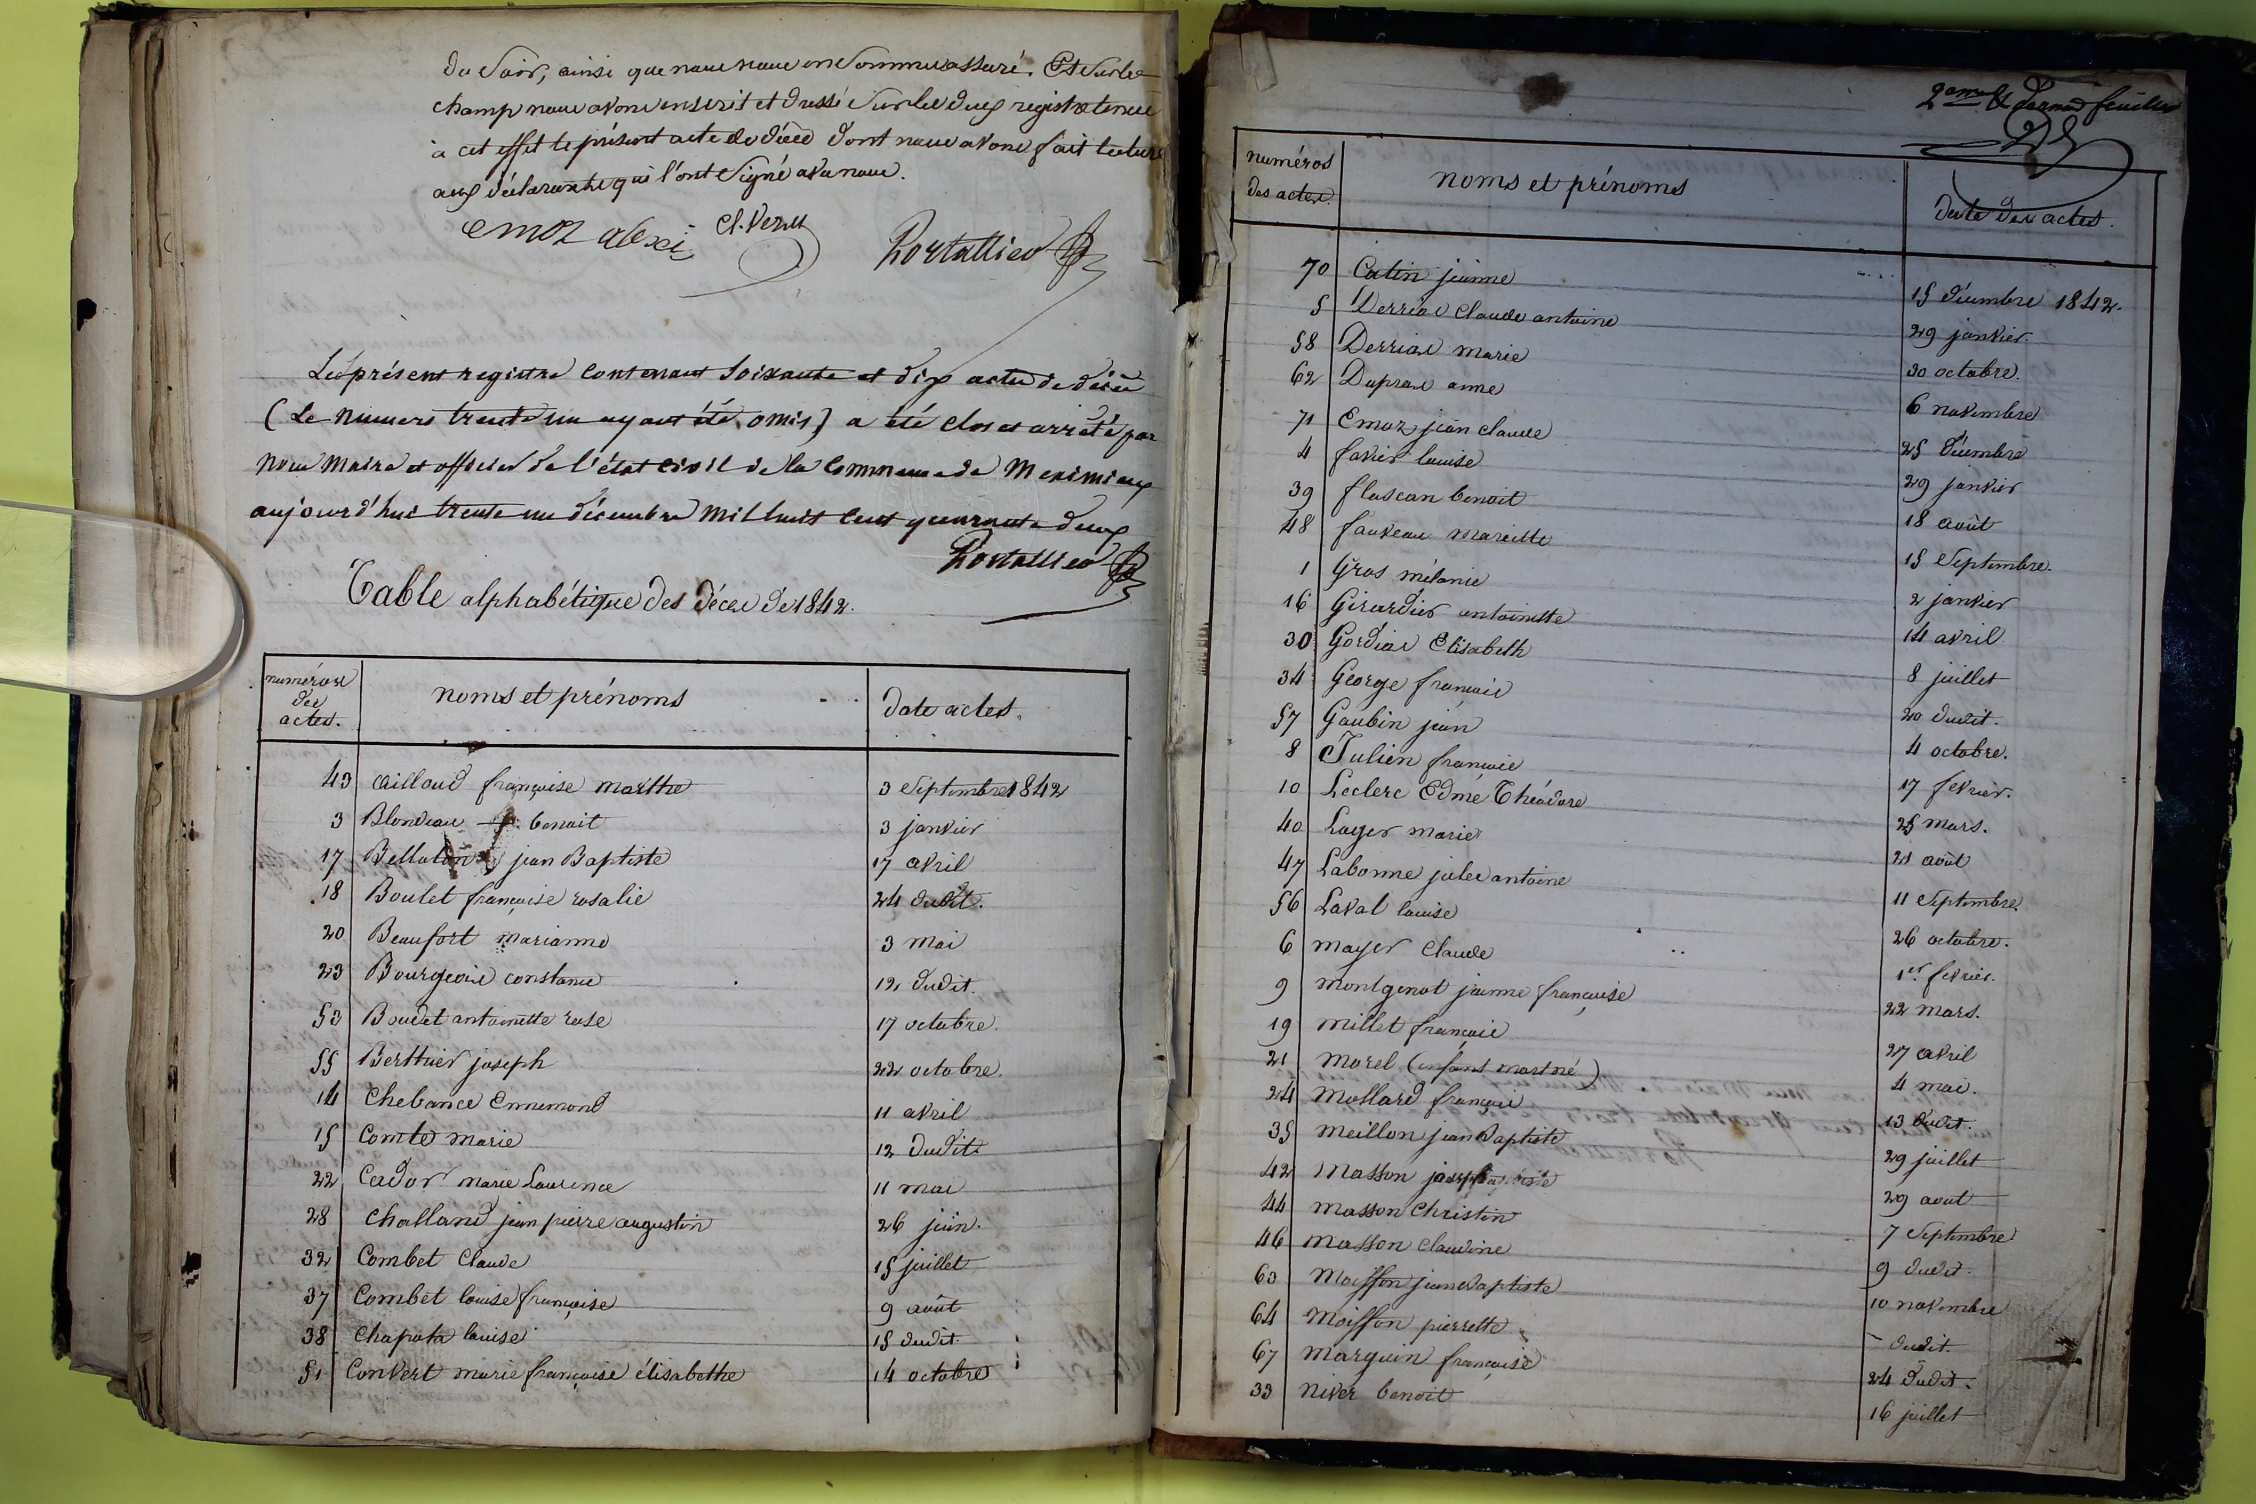 du soir, ainsi que nous nous en sommes assuré. Et sur le
champ nous avons inscrit et dressé sur les deux registre tenus
à cet effet le présent acte de décès dont nous avons fait lecture
aux déclarants qui l'ont signé avec nous.
emoz alexi Cl. Portallier
Le présent registre contenant soixante et dix actes de décès
(Le numero trente un ayant été omis) a été clos et arrêté par
nous Maire et officier de l'état civil de la Commune de Meximieux
aujourd'hui trente un décembre mil huit cent quarante deux
Portallier
Table alphabétique des décès de 1842.
numéros des actes. noms et prénoms date actes.
43 Aillaud françoise marthe 3 Septembre 1842
3 Blondeau benoit 3 janvier
17 Bellaton jean Baptiste 17 avril
18 Boulet françoise rosalie 24 dudit.
20 Beaufort marianne 3 mai
23 Bourgeois constance 12 dudit.
53 Boudet antoinette rose 17 octobre.
55 Berthier joseph 22 octobre.
14 Chebance Ennemond 11 avril
15 Comte marie 12 dudit
22 Cador marie Laurence 11 mai
28 Challand jean pierre augustin 26 juin.
32 Combet Claude 15 juillet
37 Combet louise françoise 9 août
38 Chapota louise 15 dudit
51 Convert marie françoise élisabethe 14 octobre
2eme & dernier feuillet
numéros des actes. noms et prénoms date des actes.
70 Catin jeanne 15 décembre 1842.
5 Derrias Claude antoine 29 janvier.
58 Derrias marie 30 octobre.
62 Dupras anne 6 novembre
71 Emoz jean claude 25 décembre
4 favier louise 29 janvier
39 flascan benoit 18 août
48 fauveau mariette 15 Septembre.
1 Gros mélanie 2 janvier
16 Girardier antoinette 14 avril
30 Gordias Elisabeth 8 juillet
34 George francois 20 dudit.
57 Gaubin jean 4 octobre.
8 Julien francois 17 fevrier.
10 Leclerc Edmé Théodore 25 mars.
40 Loyer marie 21 août
47 Labonne jules antoine 11 Septembre.
56 Laval louise 26 octobre.
6 mayer Claude 1er fevrier.
9 montgenot jeanne françoise 22 mars.
19 millet francois 27 avril
21 morel (enfant mort né) 4 mai.
24 mollard françois 13 dudit.
35 meillon jean Baptiste 29 juillet
42 masson joseph 29 aout
44 masson Christin 7 Septembre
46 masson claudine 9 dudit.
63 moisson jean Baptiste 10 novembre
64 moisson pierrette - dudit.
67 marguin françoise 24 dudit.
33 niver benoit 16 juillet